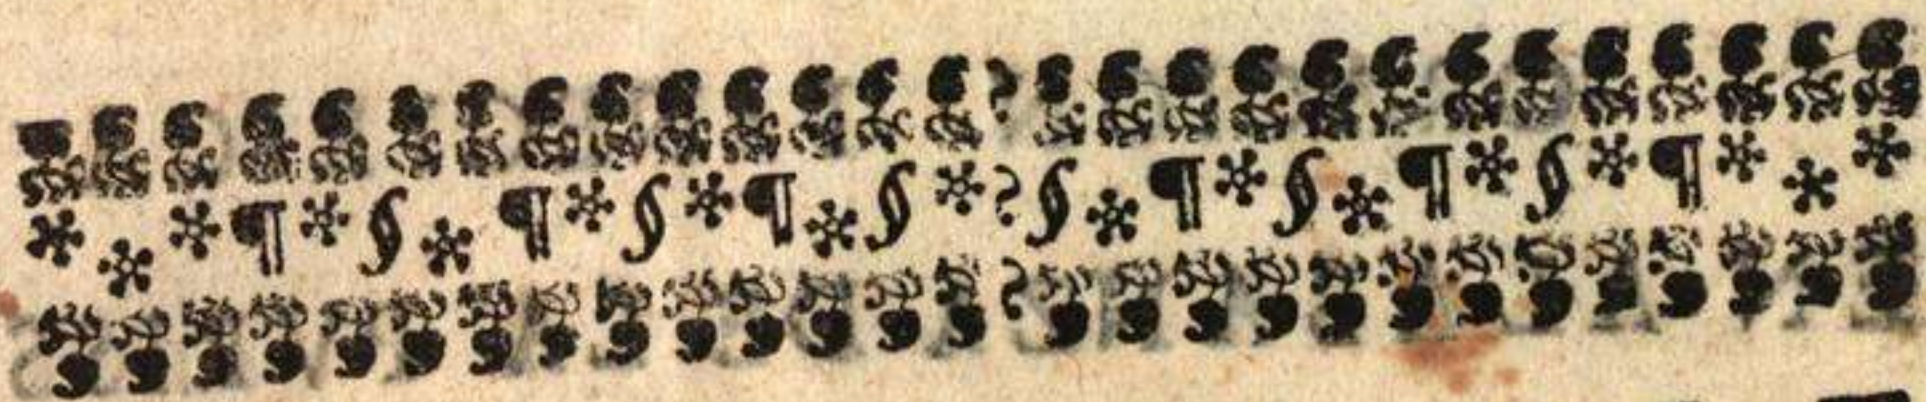 * * * ¶ * § * ¶ * § * ¶ * § * ? § * ¶ * § * ¶ * § * ¶ * * *